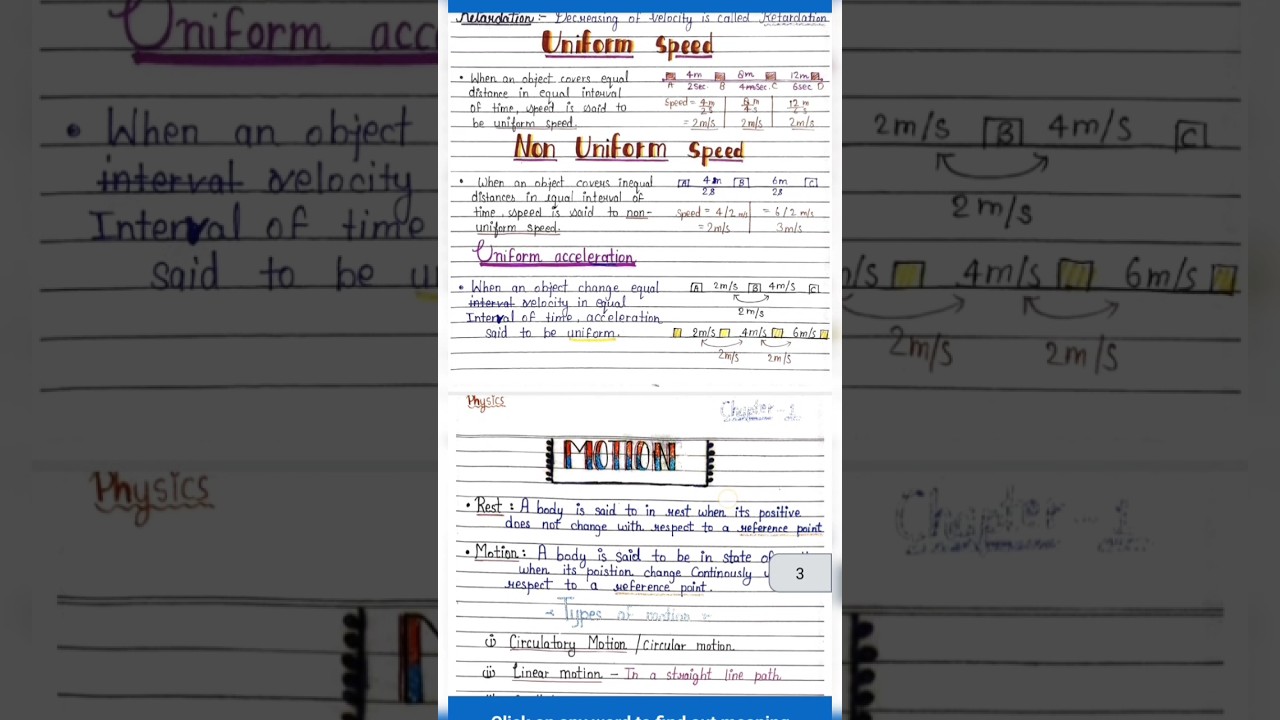 Retardation :- Decreasing of velocity is called Retardation
Uniform Speed
• When an object covers equal
distance in equal interval
of time, speed is said to
be uniform speed.
4m 8m 12m
A 2sec. B 4msec. C 6sec D
Speed = 4m/2s 8m/4s 12m/6s
= 2m/s 2m/s 2m/s
Non Uniform Speed
• When an object covers inequal
distances in equal interval of
time, speed is said to non-
uniform speed.
A 4m B 6m C
2s 2s
Speed = 4/2 m/s = 6/2 m/s
= 2m/s 3m/s
Uniform acceleration
• When an object change equal
interval velocity in equal
Interval of time, acceleration
said to be uniform.
A 2m/s B 4m/s C
2m/s
2m/s 4m/s 6m/s
2m/s 2m/s
Physics
Chapter - 1
MOTION
• Rest : A body is said to in rest when its positive
does not change with respect to a reference point
• Motion : A body is said to be in state of
when its poistion change Continously
respect to a reference point.
3
Types of motion
(i) Circulatory Motion / Circular motion.
(ii) Linear motion - In a straight line path.
Click on any word to find out meaning
Uniform acc
• When an object
interval velocity
Interval of time
said to be u
Physics
2m/s B 4m/s C
2m/s
m/s 4m/s 6m/s
2m/s 2m/s
Chapter - 1